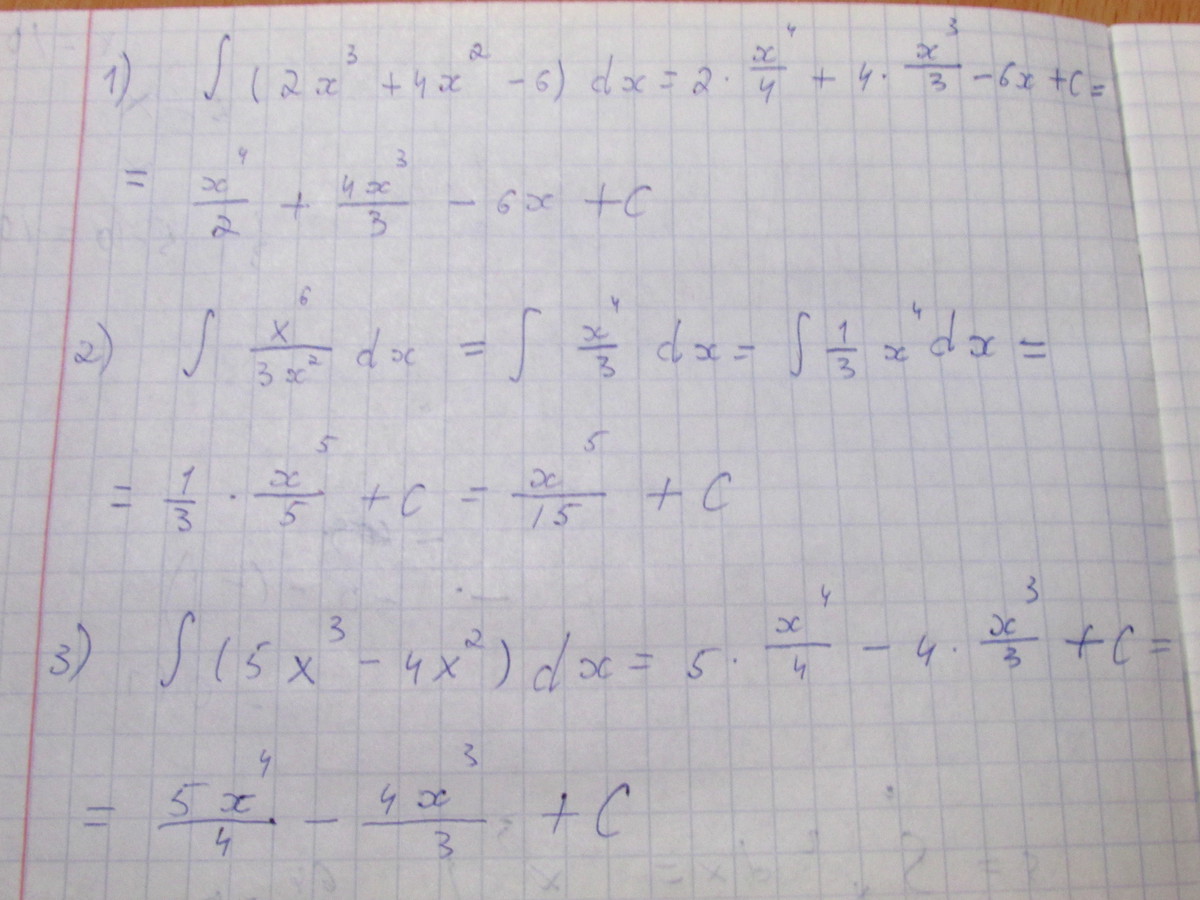 1) ∫ (2x³ + 4x² - 6) dx = 2 · x⁴/4 + 4 · x³/3 - 6x + C =
= x⁴/2 + 4x³/3 - 6x + C
2) ∫ x⁶/3x² dx = ∫ x⁴/3 dx = ∫ 1/3 x⁴ dx =
= 1/3 · x⁵/5 + C = x⁵/15 + C
3) ∫ (5x³ - 4x²) dx = 5 · x⁴/4 - 4 · x³/3 + C =
= 5x⁴/4 - 4x³/3 + C